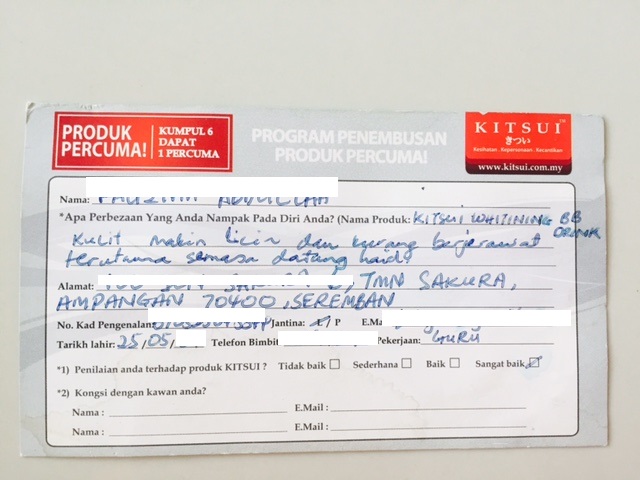 PRODUK PERCUMA!
KUMPUL 6 DAPAT 1 PERCUMA
PROGRAM PENEMBUSAN PRODUK PERCUMA!
KITSUI™
きつい
Kesihatan . Keperawanan . Kecantikan
www.kitsui.com.my
Nama:
*Apa Perbezaan Yang Anda Nampak Pada Diri Anda? (Nama Produk: KITSUI WHITINING BB DRINK
Kulit makin licin dan kurang berjerawat
terutama semasa datang haid.
Alamat: TMN SAKURA,
AMPANGAN 70400, SEREMBAN
No. Kad Pengenalan: Jantina: L / P E.Ma
Tarikh lahir: 25/05/ Telefon Bimbit Pekerjaan: GURU
*1) Penilaian anda terhadap produk KITSUI ? Tidak baik Sederhana Baik Sangat baik
*2) Kongsi dengan kawan anda?
Nama : E.Mail :
Nama : E.Mail :